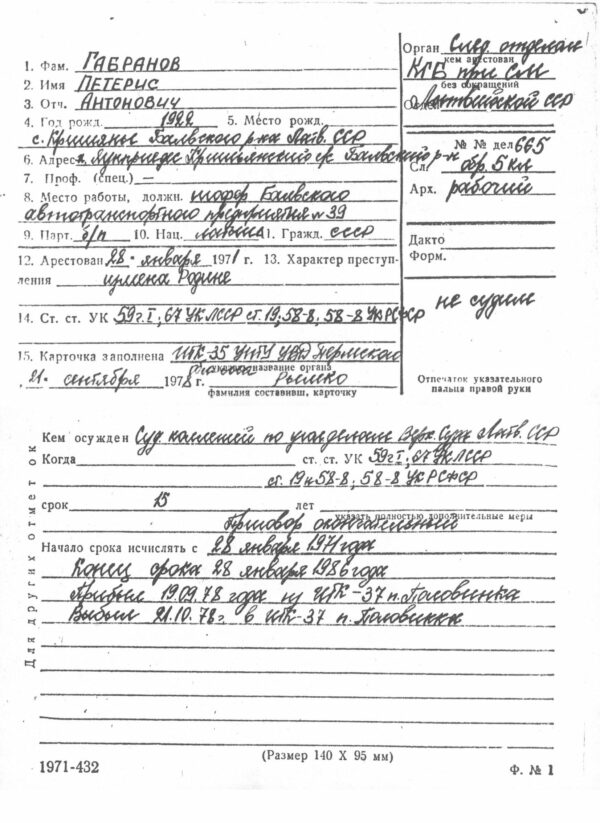 1. Фам. ГАБРАНОВ
2. Имя ПЕТЕРИС
3. Отч. АНТОНОВИЧ
4. Год рожд. 1922 5. Место рожд.
с. Кришяны Балвского р-на Латв. ССР
6. Адрес Кришьянский с/с Балвский р-н
7. Проф. (спец.) —
8. Место работы, должн. шофер Балвского
автотранспортного предприятия № 39
9. Парт. б/п 10. Нац. латыш 11. Гражд. СССР
12. Арестован 28 января 1971 г. 13. Характер преступ-
ления измена Родине
14. Ст. ст. УК 59 ч. I; 67 УК ЛССР ст. 19, 58-8; 58-8 УК РСФСР
15. Карточка заполнена ИТК-35 УИТУ УВД Пермского
наименование органа
21 сентября 1978 г. Рымко
фамилия составивш. карточку
Орган След. отделом
кем арестован
КГБ при СМ
без сокращений
Латвийской ССР
№ № дел 665
Сл. обр. 5 кл
Арх. рабочий
Дакто
Форм.
не судим
Отпечаток указательного
пальца правой руки
Для других отметок
Кем осужден Суд. коллегией по угол. делам Верх. Суда Латв. ССР
Когда ст. ст. УК 59 ч I; 67 УК ЛССР
ст. 19 и 58-8; 58-8 УК РСФСР
срок 15 лет
указать полностью дополнительные меры
Приговор окончательный
Начало срока исчислять с 28 января 1971 года
Конец срока 28 января 1986 года
Прибыл 19.09.78 года из ИТК-37 п. Половинка
Выбыл 21.10.78 г. в ИТК-37 п. Половинка
(Размер 140 X 95 мм)
1971-432
Ф. № 1